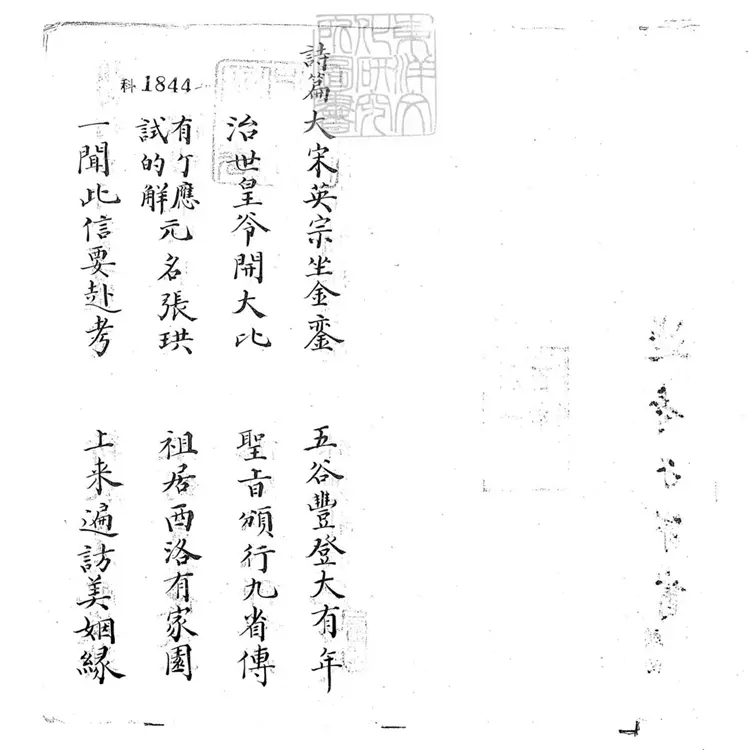 東洋文
化研究
所圖書
科 1844
詩篇大宋英宗坐金鑾 五谷豐登大有年
治世皇爷開大比 聖旨頒行九省傳
有亇應試的觧元名張珙 祖居西洛有家園
一聞此信要赴考 上来遍訪美姻緣